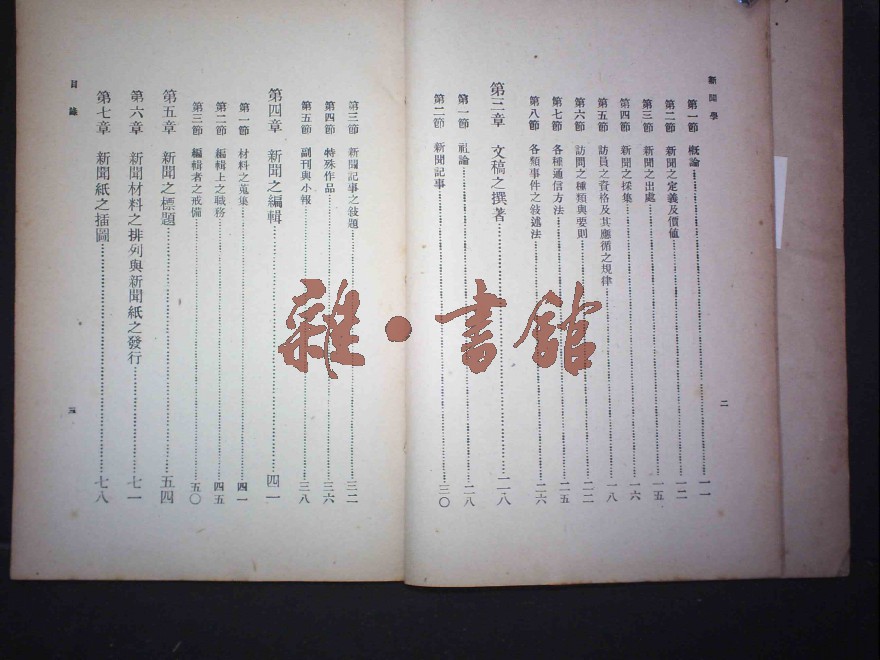 新聞學
二
第一節 概論 一一
第二節 新聞之定義及價值 一二
第三節 新聞之出處 一五
第四節 新聞之採集 一六
第五節 訪員之資格及其應循之規律 一八
第六節 訪問之種類與要則 二二
第七節 各種通信方法 二五
第八節 各類事件之敍述法 二六
第三章 文稿之撰著 二八
第一節 社論 二八
第二節 新聞記事 三〇
第三節 新聞記事之敍題 三二
第四節 特殊作品 三六
第五節 副刊與小報 三八
第四章 新聞之編輯 四一
第一節 材料之蒐集 四一
第二節 編輯上之職務 四五
第三節 編輯者之戒備 五〇
第五章 新聞之標題 五四
第六章 新聞材料之排列與新聞紙之發行 七一
第七章 新聞紙之插圖 七八
目錄
三
雜·書館